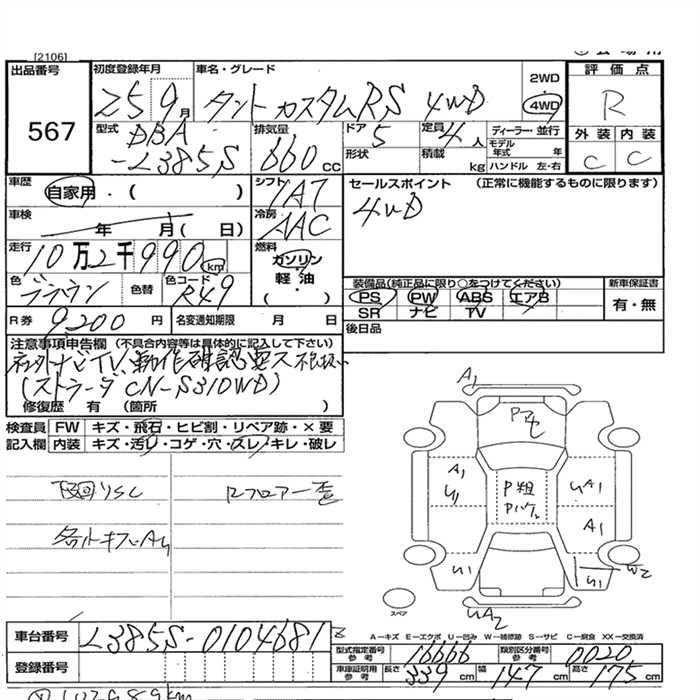 [2106]
出品番号
567
初度登録年月
25 9 月
車名・グレード
タント カスタムRS 4WD
2WD
4WD
評価点
R
外装 内装
C C
型式
DBA
-L385S
排気量
660 cc
ドア
5
定員
4 人
形状
積載
kg
ディーラー・並行
モデル
年式 年
ハンドル 左・右
車歴
自家用・( )
シフト
IAT
セールスポイント (正常に機能するものに限ります)
4WD
車検
年 月( 日)
冷房
AAC
走行
10万2千990 km
燃料
ガソリン
軽油
( ・ )
色
ブラウン
色替
色コード
R49
装備品(純正品に限り○をつけてください)
PS PW ABS エアB
SR ナビ TV
新車保証書
有・無
R券
9,200 円
名変通知期限 月 日
後日品
注意事項申告欄 (不具合内容等は具体的に記入して下さい)
ナビTV、動作確認要ス 不扱い
(ストラーダ CN-S310WD)
修復歴 有 (箇所 )
検査員 FW キズ・飛石・ヒビ割・リペア跡・×要
記入欄 内装 キズ・汚レ・コゲ・穴・スレ・キレ・破レ
取回リSC
Rフロアー歪
各所キズAU
A1
A1
U1
P粗
Pハゲ
UA1
A1
U1
U1
W2
UA2
スペア
A-キズ E-エクボ U-凹み W-補修跡 S-サビ C-腐食 XX-交換済
車台番号
L385S-0104681
登録番号
型式指定番号
参考
16666
類別区分番号
参考
0020
車庫証明用
参考
長さ
339 cm
幅
147 cm
高さ
175 cm